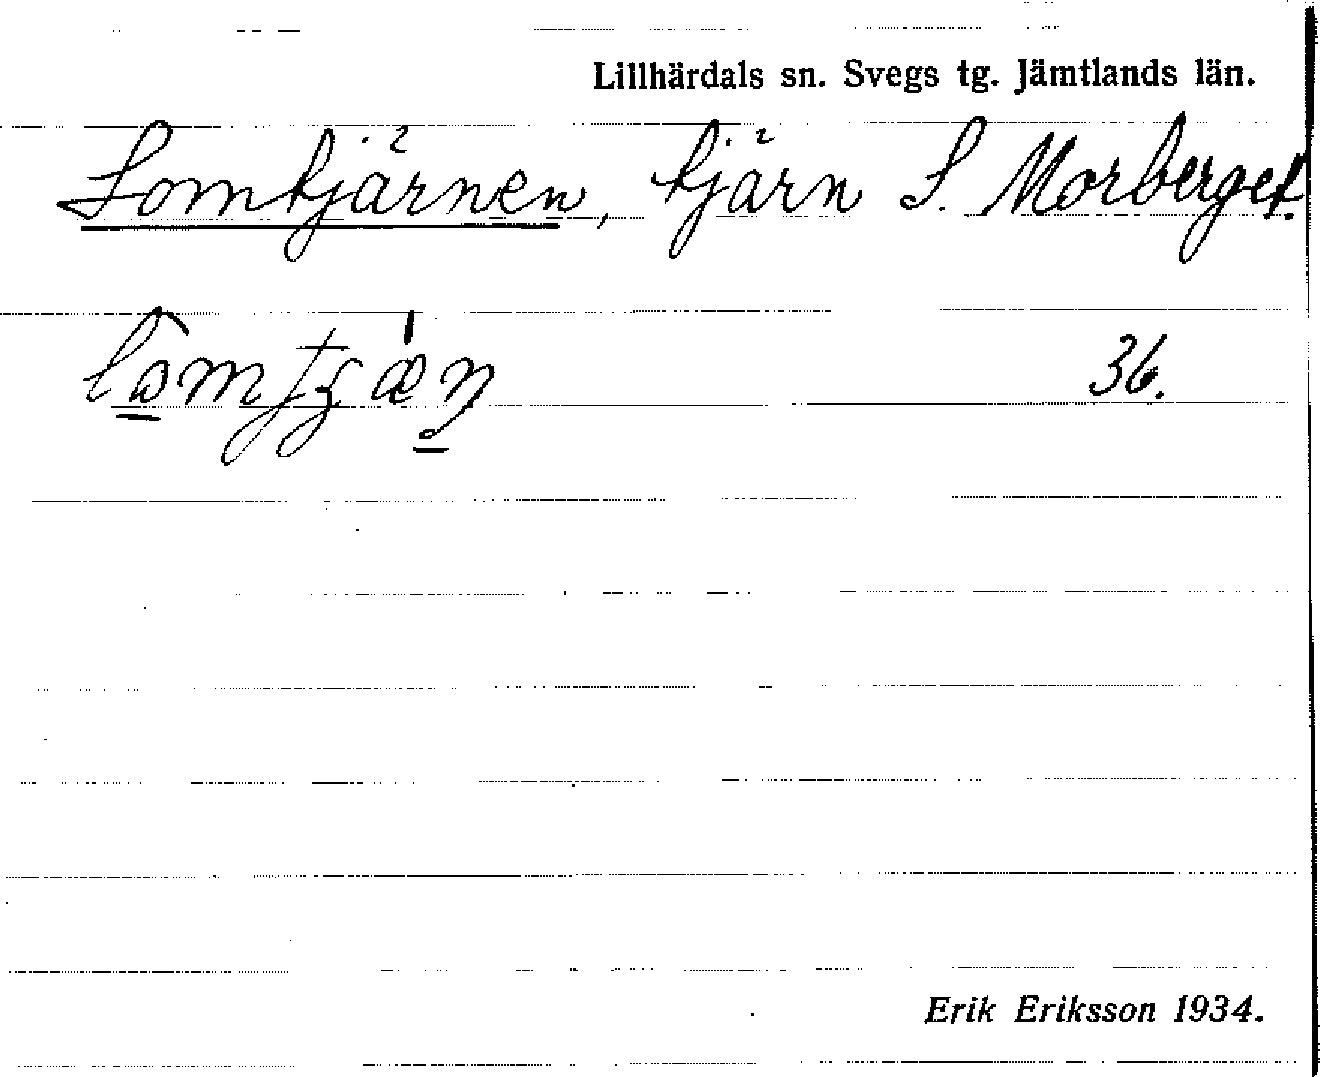 Lillhärdals sn. Svegs tg. Jämtlands län.
Lomtjärnen, tjärn S. Morberget.
36.
Erik Eriksson 1934.